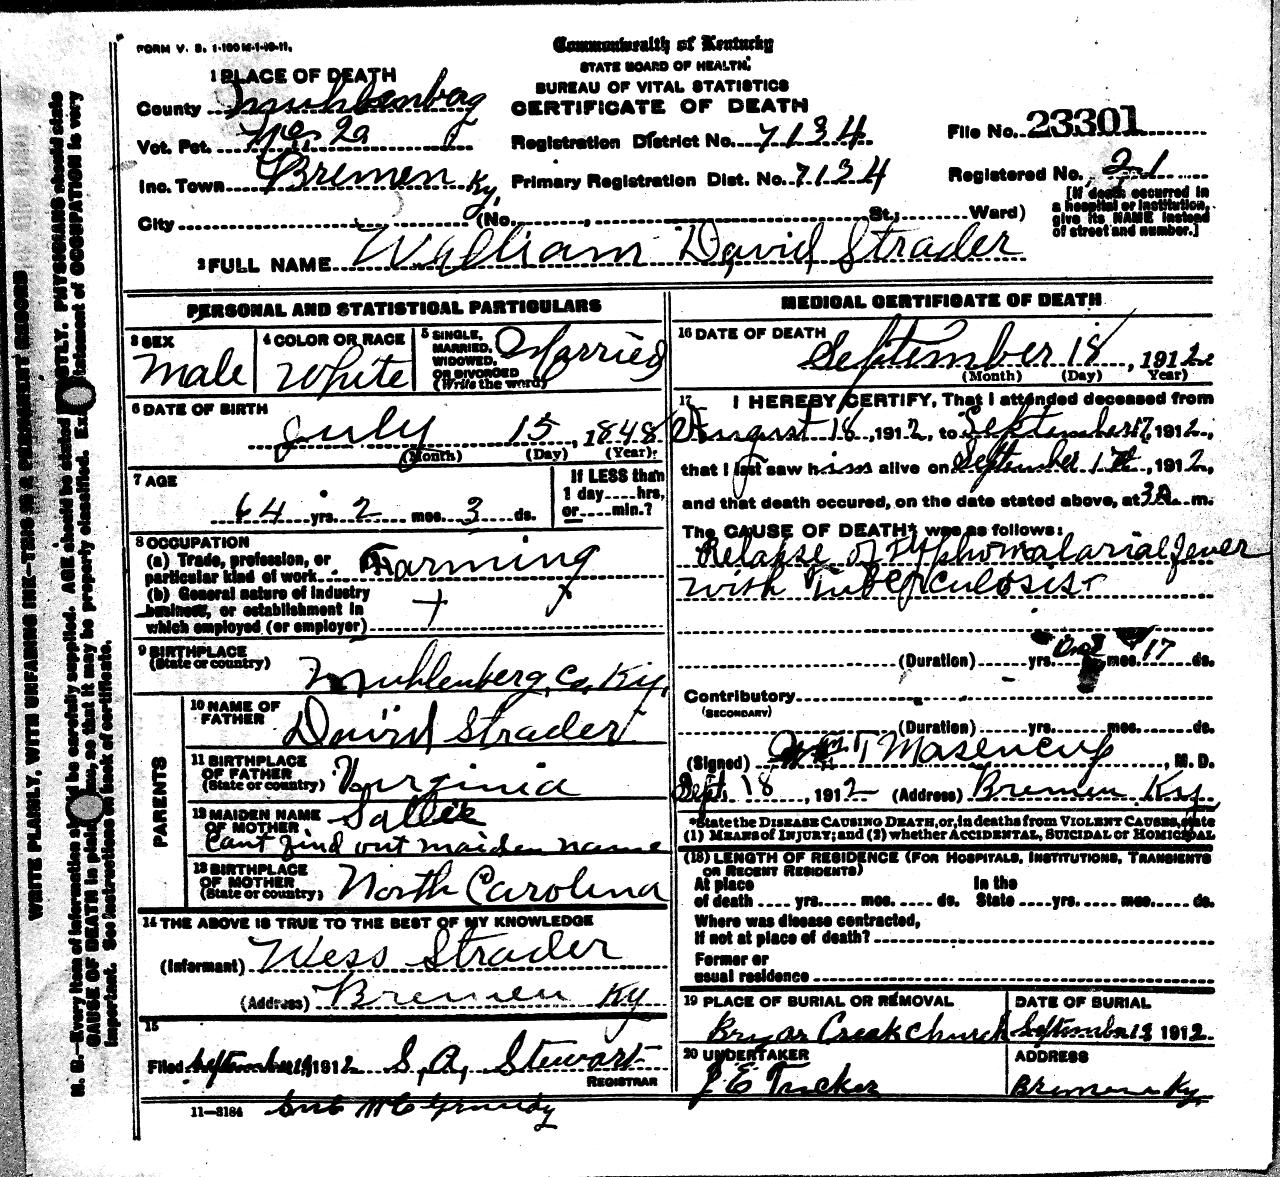 FORM V. S. 1-100M-1-10-11.
Commonwealth of Kentucky
STATE BOARD OF HEALTH.
BUREAU OF VITAL STATISTICS
CERTIFICATE OF DEATH
1 PLACE OF DEATH
County Muhlenberg
Vot. Pct. No. 2a
Inc. Town Bremen Ky,
City (No. , St.; Ward)
Registration District No. 7134
Primary Registration Dist. No. 7134
File No. 23301
Registered No. 21
[If death occurred in
a hospital or institution,
give its NAME instead
of street and number.]
2 FULL NAME William David Strader
PERSONAL AND STATISTICAL PARTICULARS
3 SEX
Male
4 COLOR OR RACE
White
5 SINGLE,
MARRIED,
WIDOWED,
OR DIVORCED
(Write the word)
Married
6 DATE OF BIRTH
July 15, 1848
(Month) (Day) (Year)
7 AGE
64 yrs. 2 mos. 3 ds.
If LESS than
1 day....hrs,
or.....min.?
8 OCCUPATION
(a) Trade, profession, or
particular kind of work Farming
(b) General nature of industry
business, or establishment in
which employed (or employer)
9 BIRTHPLACE
(State or country) Muhlenberg, Co, Ky,
PARENTS
10 NAME OF
FATHER David Strader
11 BIRTHPLACE
OF FATHER
(State or country) Virginia
12 MAIDEN NAME
OF MOTHER Sallie
Cant find out maiden name
13 BIRTHPLACE
OF MOTHER
(State or country) North Carolina
14 THE ABOVE IS TRUE TO THE BEST OF MY KNOWLEDGE
(Informant) Wess Strader
(Address) Bremen Ky
15
Filed September 19 1912 S, A, Stewart
REGISTRAR
11—3184 Sub
MEDICAL CERTIFICATE OF DEATH
16 DATE OF DEATH
September 18, 1912
(Month) (Day) Year)
17 I HEREBY CERTIFY, That I attended deceased from
August 18, 1912, to September 17, 1912,
that I last saw him alive on September 17th, 1912,
and that death occured, on the date stated above, at 3 a. m.
The CAUSE OF DEATH* was as follows:
Relapse of Typhomalarial Fever
with Tuberculosis
(Duration) yrs. mos. 17 ds.
Contributory
(SECONDARY)
(Duration) yrs. mos. ds.
(Signed) T Masencup, M. D.
Sept. 18, 1912 (Address) Bremen Ky
*State the DISEASE CAUSING DEATH, or, in deaths from VIOLENT CAUSES, state
(1) MEANS of INJURY; and (2) whether ACCIDENTAL, SUICIDAL or HOMICIDAL
(18) LENGTH OF RESIDENCE (FOR HOSPITALS, INSTITUTIONS, TRANSIENTS
OR RECENT RESIDENTS)
At place In the
of death yrs. mos. ds. State yrs. mos. ds.
Where was disease contracted,
If not at place of death?
Former or
usual residence
19 PLACE OF BURIAL OR REMOVAL
Bryar Creek Church
DATE OF BURIAL
September 19, 1912
20 UNDERTAKER
J E Tucker
ADDRESS
Bremen Ky.
WRITE PLAINLY, WITH UNFADING INK—THIS IS A PERMANENT RECORD
N. B.—Every item of information should be carefully supplied. AGE should be stated EXACTLY. PHYSICIANS should state
CAUSE OF DEATH in plain terms, so that it may be properly classified. Exact statement of OCCUPATION is very
important. See instructions on back of certificate.